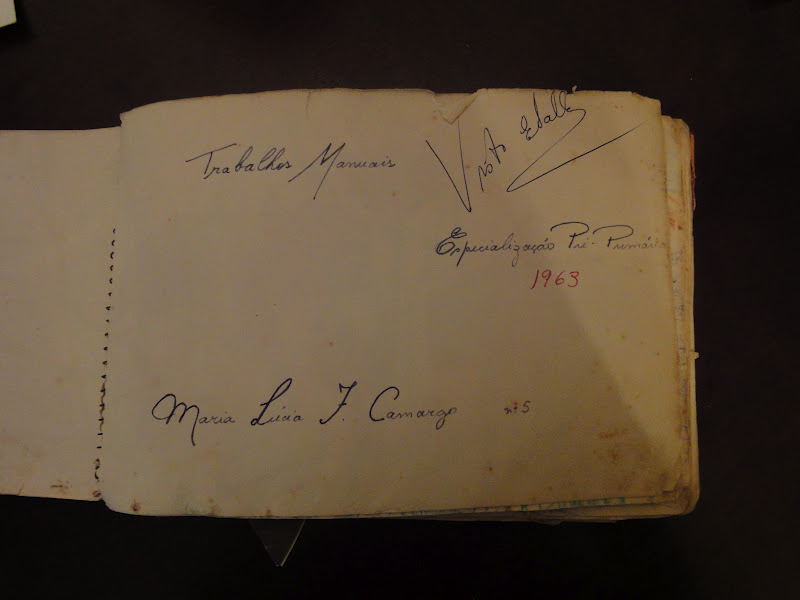 Trabalhos Manuais
Visto
Especialização Pré-Primária
1963
Maria Lúcia F. Camargo nº 5